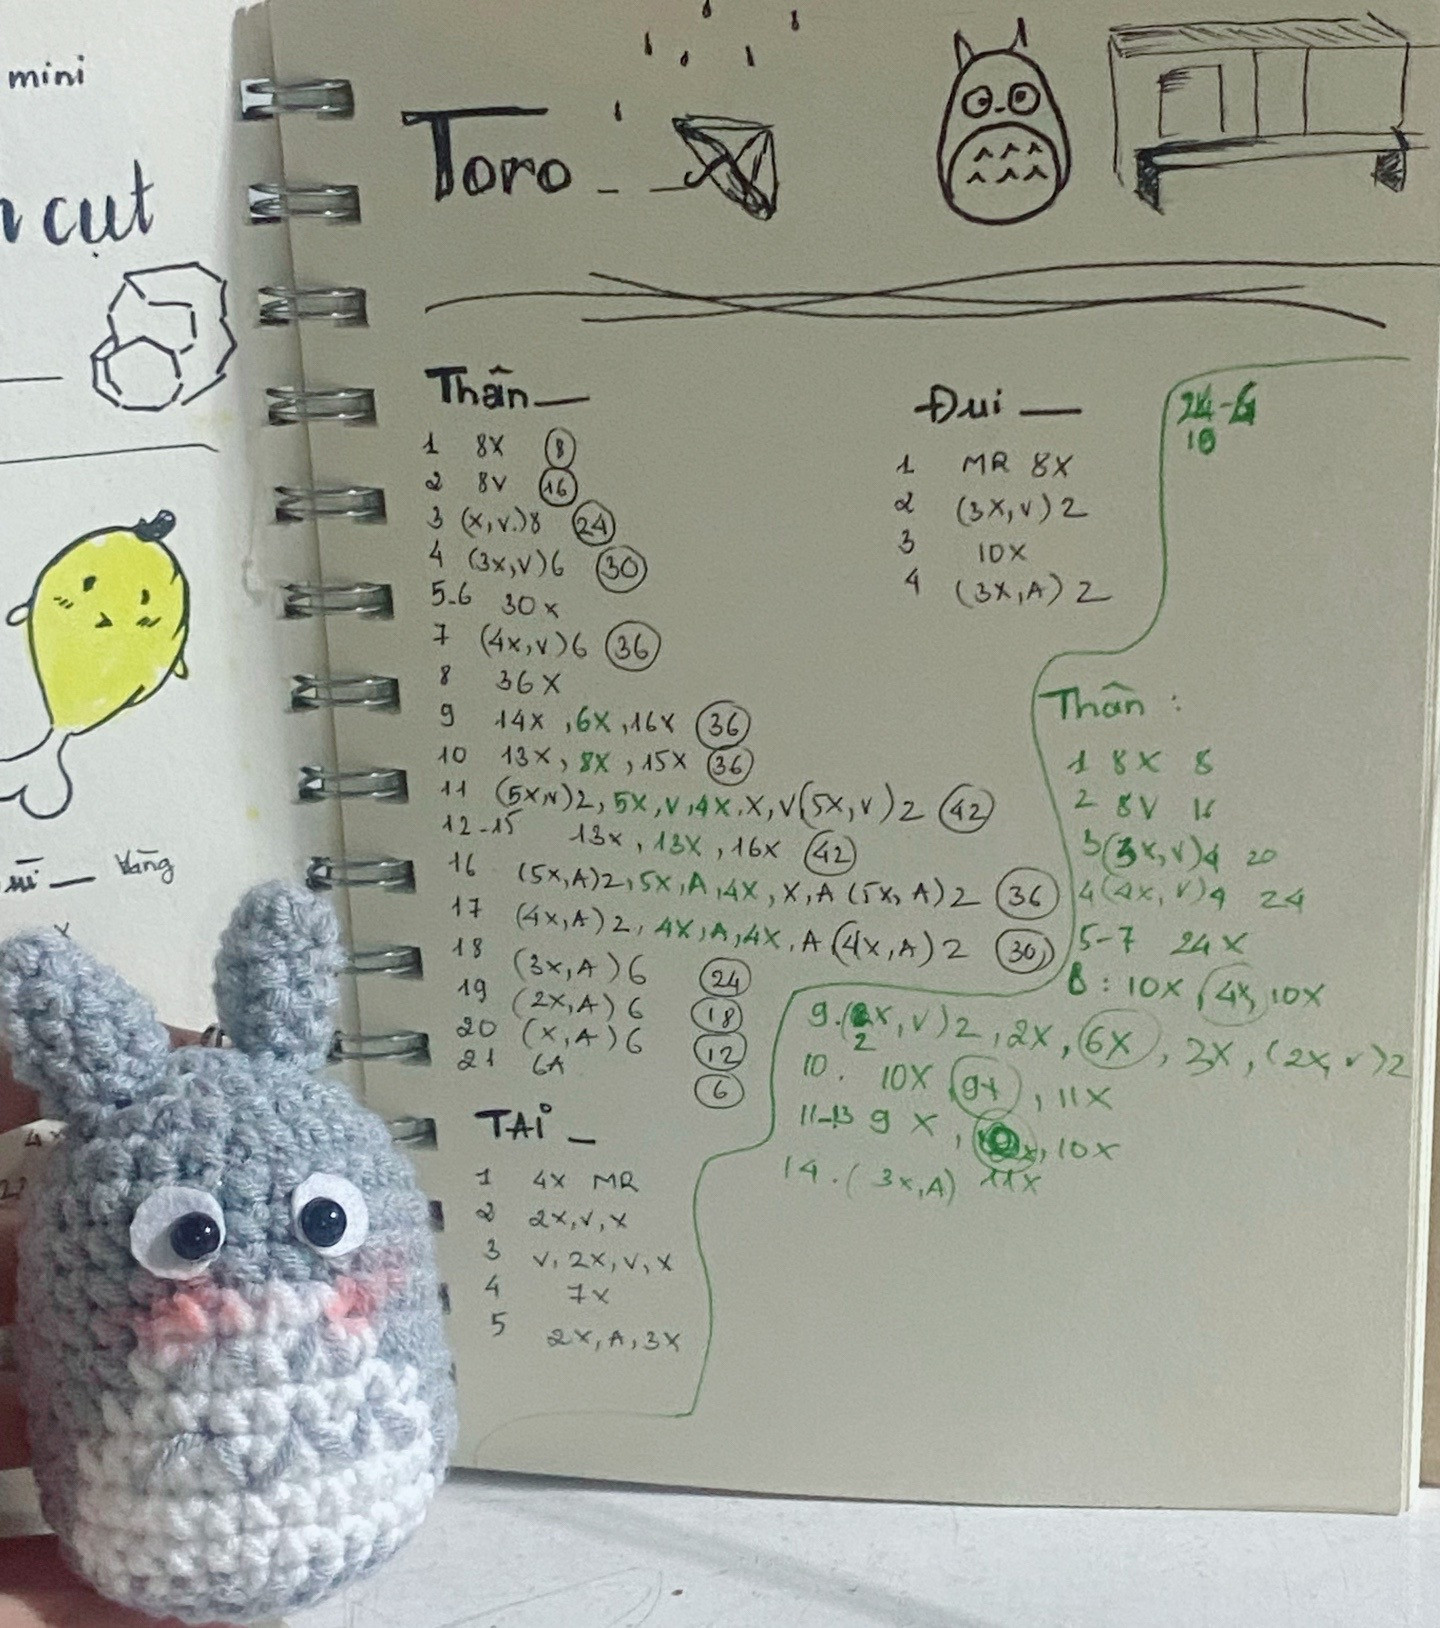 mini
cụt
vàng
Toro
Thân
1 8X 8
2 8V 16
3 (x,v.)8 24
4 (3x,v)6 30
5-6 30x
7 (4x,v)6 36
8 36X
9 14x, 6x, 16x 36
10 13x, 8x, 15x 36
11 (5x,v)2, 5x, v, 4x, x, v(5x,v)2 42
12-15 13x, 13x, 16x 42
16 (5x,A)2, 5x, A, 4x, x, A (5x, A)2 36
17 (4x,A)2, 4x, A, 4x, A (4x,A)2 30
18 (3x,A)6 24
19 (2x,A)6 18
20 (x,A)6 12
21 6A 6
TAI
1 4x MR
2 2x, v, x
3 v, 2x, v, x
4 7x
5 2x, A, 3x
Đui
1 MR 8X
2 (3x,v)2
3 10X
4 (3x,A)2
Thân :
1 8X 8
2 8V 16
3(3x,v)4 20
4(4x,v)4 24
5-7 24X
8 : 10X, 4x, 10X
9. (2x,v)2, 2x, 6x, 3x, (2x,v)2
10. 10X, 9x, 11X
11-13 9X, 10X
14. (3x,A) 11x